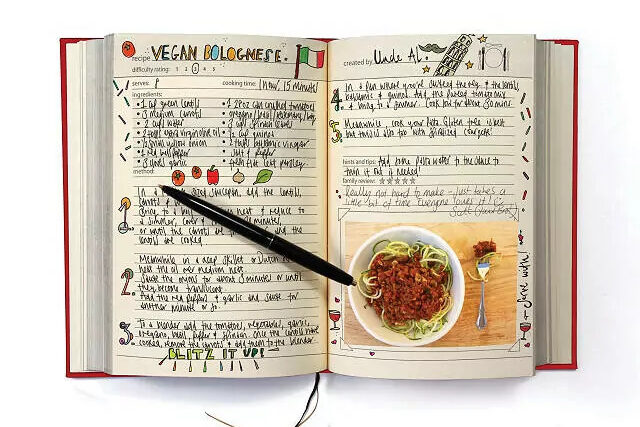 recipe VEGAN BOLOGNESE.
difficulty rating: 1 2 3 4 5
serves: cooking time: 1 hour, 15 minutes
ingredients:
• 1 cup green lentils
• 3 medium carrots
• 2 cups water
• 1 small yellow onion
• 1 red bell pepper
• 3 cloves garlic
• 2 14oz can crushed tomatoes
• 3 cups spinach leaves
• 1/2 cup quinoa
• 2 tbsp balsamic vinegar
• salt & pepper
• fresh flat leaf parsley
method:
1. In a sized saucepan, add the lentils,
carrots &
Bring to a boil heat & reduce to
a simmer, cover & minutes
or until the carrots are and the
lentils are cooked
2. Meanwhile in a deep skillet or Dutch
heat the oil over medium heat.
Saute the onions for about 5 minutes or until
they become translucent.
Add the red peppers & garlic and saute for
another minute or so.
3. To a blender add the tomatoes, vegetables, garlic,
oregano, basil, pepper & spinach. Once the lentils have
cooked, remove the carrots & add them to the blender
BLITZ IT UP!
created by: Uncle Al.
4. In a pan where you've sauteed the veg & the lentils,
balsamic & quinoa. Add the pureed tomatoes
& bring to a simmer. Cook for about 30 mins.
5. Meanwhile, cook your pasta. Gluten free is best
but this is also too with spiralized courgette!
hints and tips: Add some pasta water to the sauce to
thin it out if needed!
family review:
Really not hard to make - just takes a
little bit of time. Everyone loves it!
Scott
Serve with